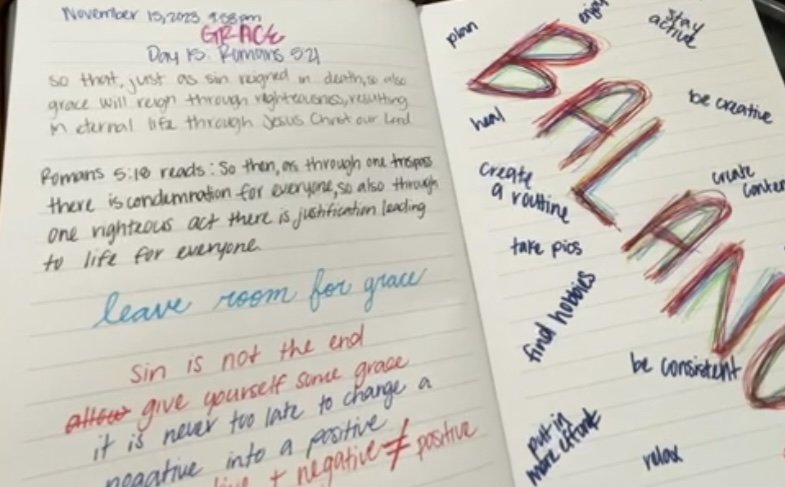 November 15, 2023 9:58pm
GRACE
Day 15: Romans 5:21
so that, just as sin reigned in death, so also
grace will reign through righteousness, resulting
in eternal life through Jesus Christ our Lord
Romans 5:18 reads: So then, as through one trespass
there is condemnation for everyone, so also through
one righteous act there is justification leading
to life for everyone.
leave room for grace
sin is not the end
allow give yourself some grace
it is never too late to change a
negative into a positive
+ negative ≠ positive
plan
enjoy
stay
active
BALANC
heal
be creative
create
a routine
create
take pics
find hobbies
be consistent
put in
more effort
relax